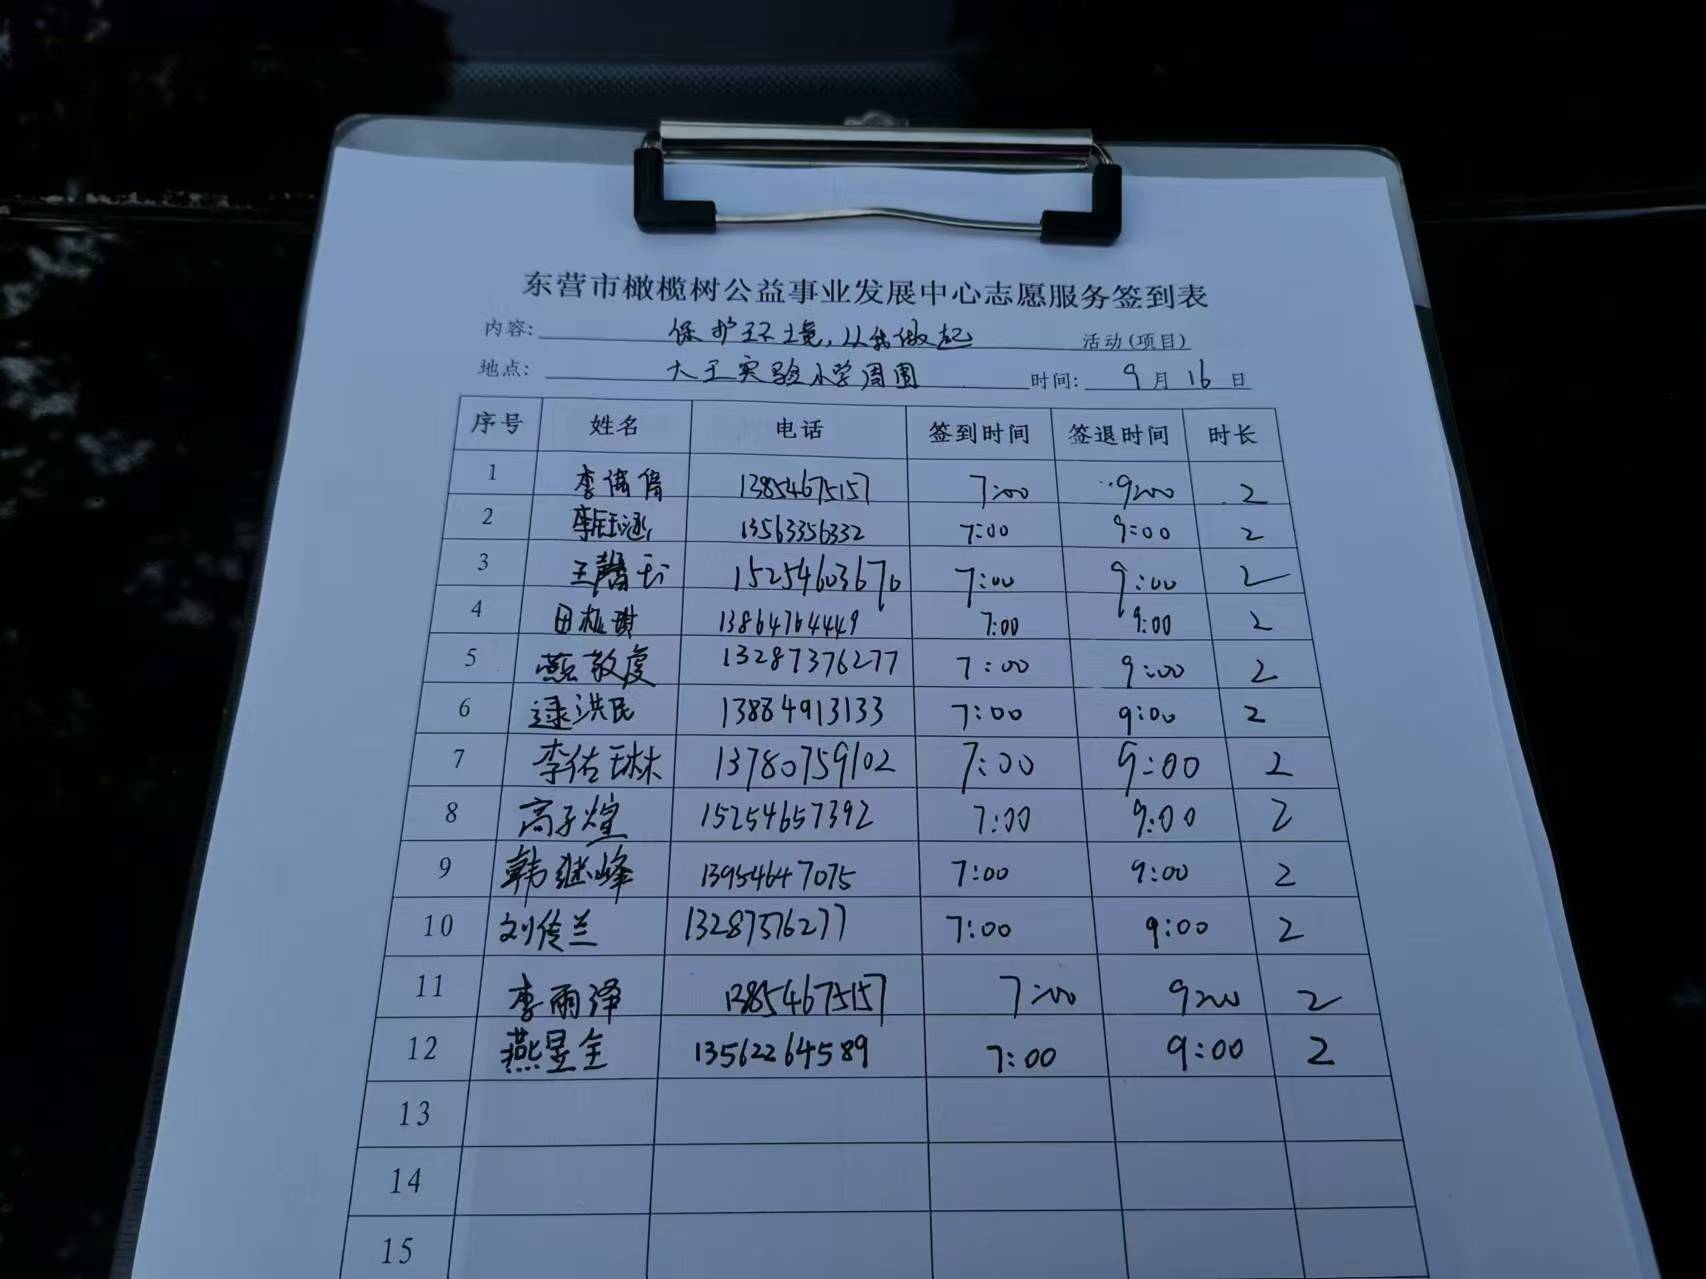 东营市橄榄树公益事业发展中心志愿服务签到表
内容: 保护环境,从我做起 活动(项目)
地点: 大王实验小学周围 时间: 9月16日
序号 姓名 电话 签到时间 签退时间 时长
1 李倩倩 13854675157 7:00 9:00 2
2 李钰涵 13563356332 7:00 9:00 2
3 王馨 15254603676 7:00 9:00 2
4 田 13864764449 7:00 9:00 2
5 燕敬虔 13287376277 7:00 9:00 2
6 逯洪民 13884913133 7:00 9:00 2
7 李佑琳 13780759102 7:00 9:00 2
8 高子煊 15254657392 7:00 9:00 2
9 韩继峰 13954647075 7:00 9:00 2
10 刘传兰 13287376277 7:00 9:00 2
11 李雨泽 13854675157 7:00 9:00 2
12 燕昱全 13562264589 7:00 9:00 2
13
14
15